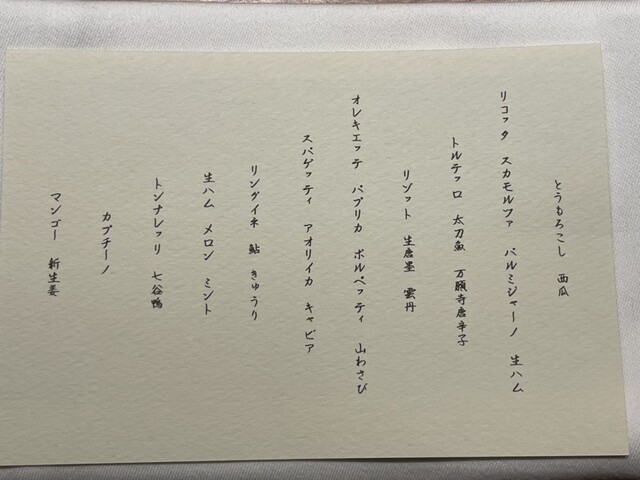 とうもろこし 西瓜
リコッタ スカモルファ パルミジャーノ 生ハム
トルテッロ 太刀魚 万願寺唐辛子
リゾット 生唐墨 雲丹
オレキエッテ パプリカ ポルペッティ 山わさび
スパゲッティ アオリイカ キャビア
リングイネ 鮎 きゅうり
生ハム メロン ミント
トンナレッリ 七谷鴨
カプチーノ
マンゴー 新生姜